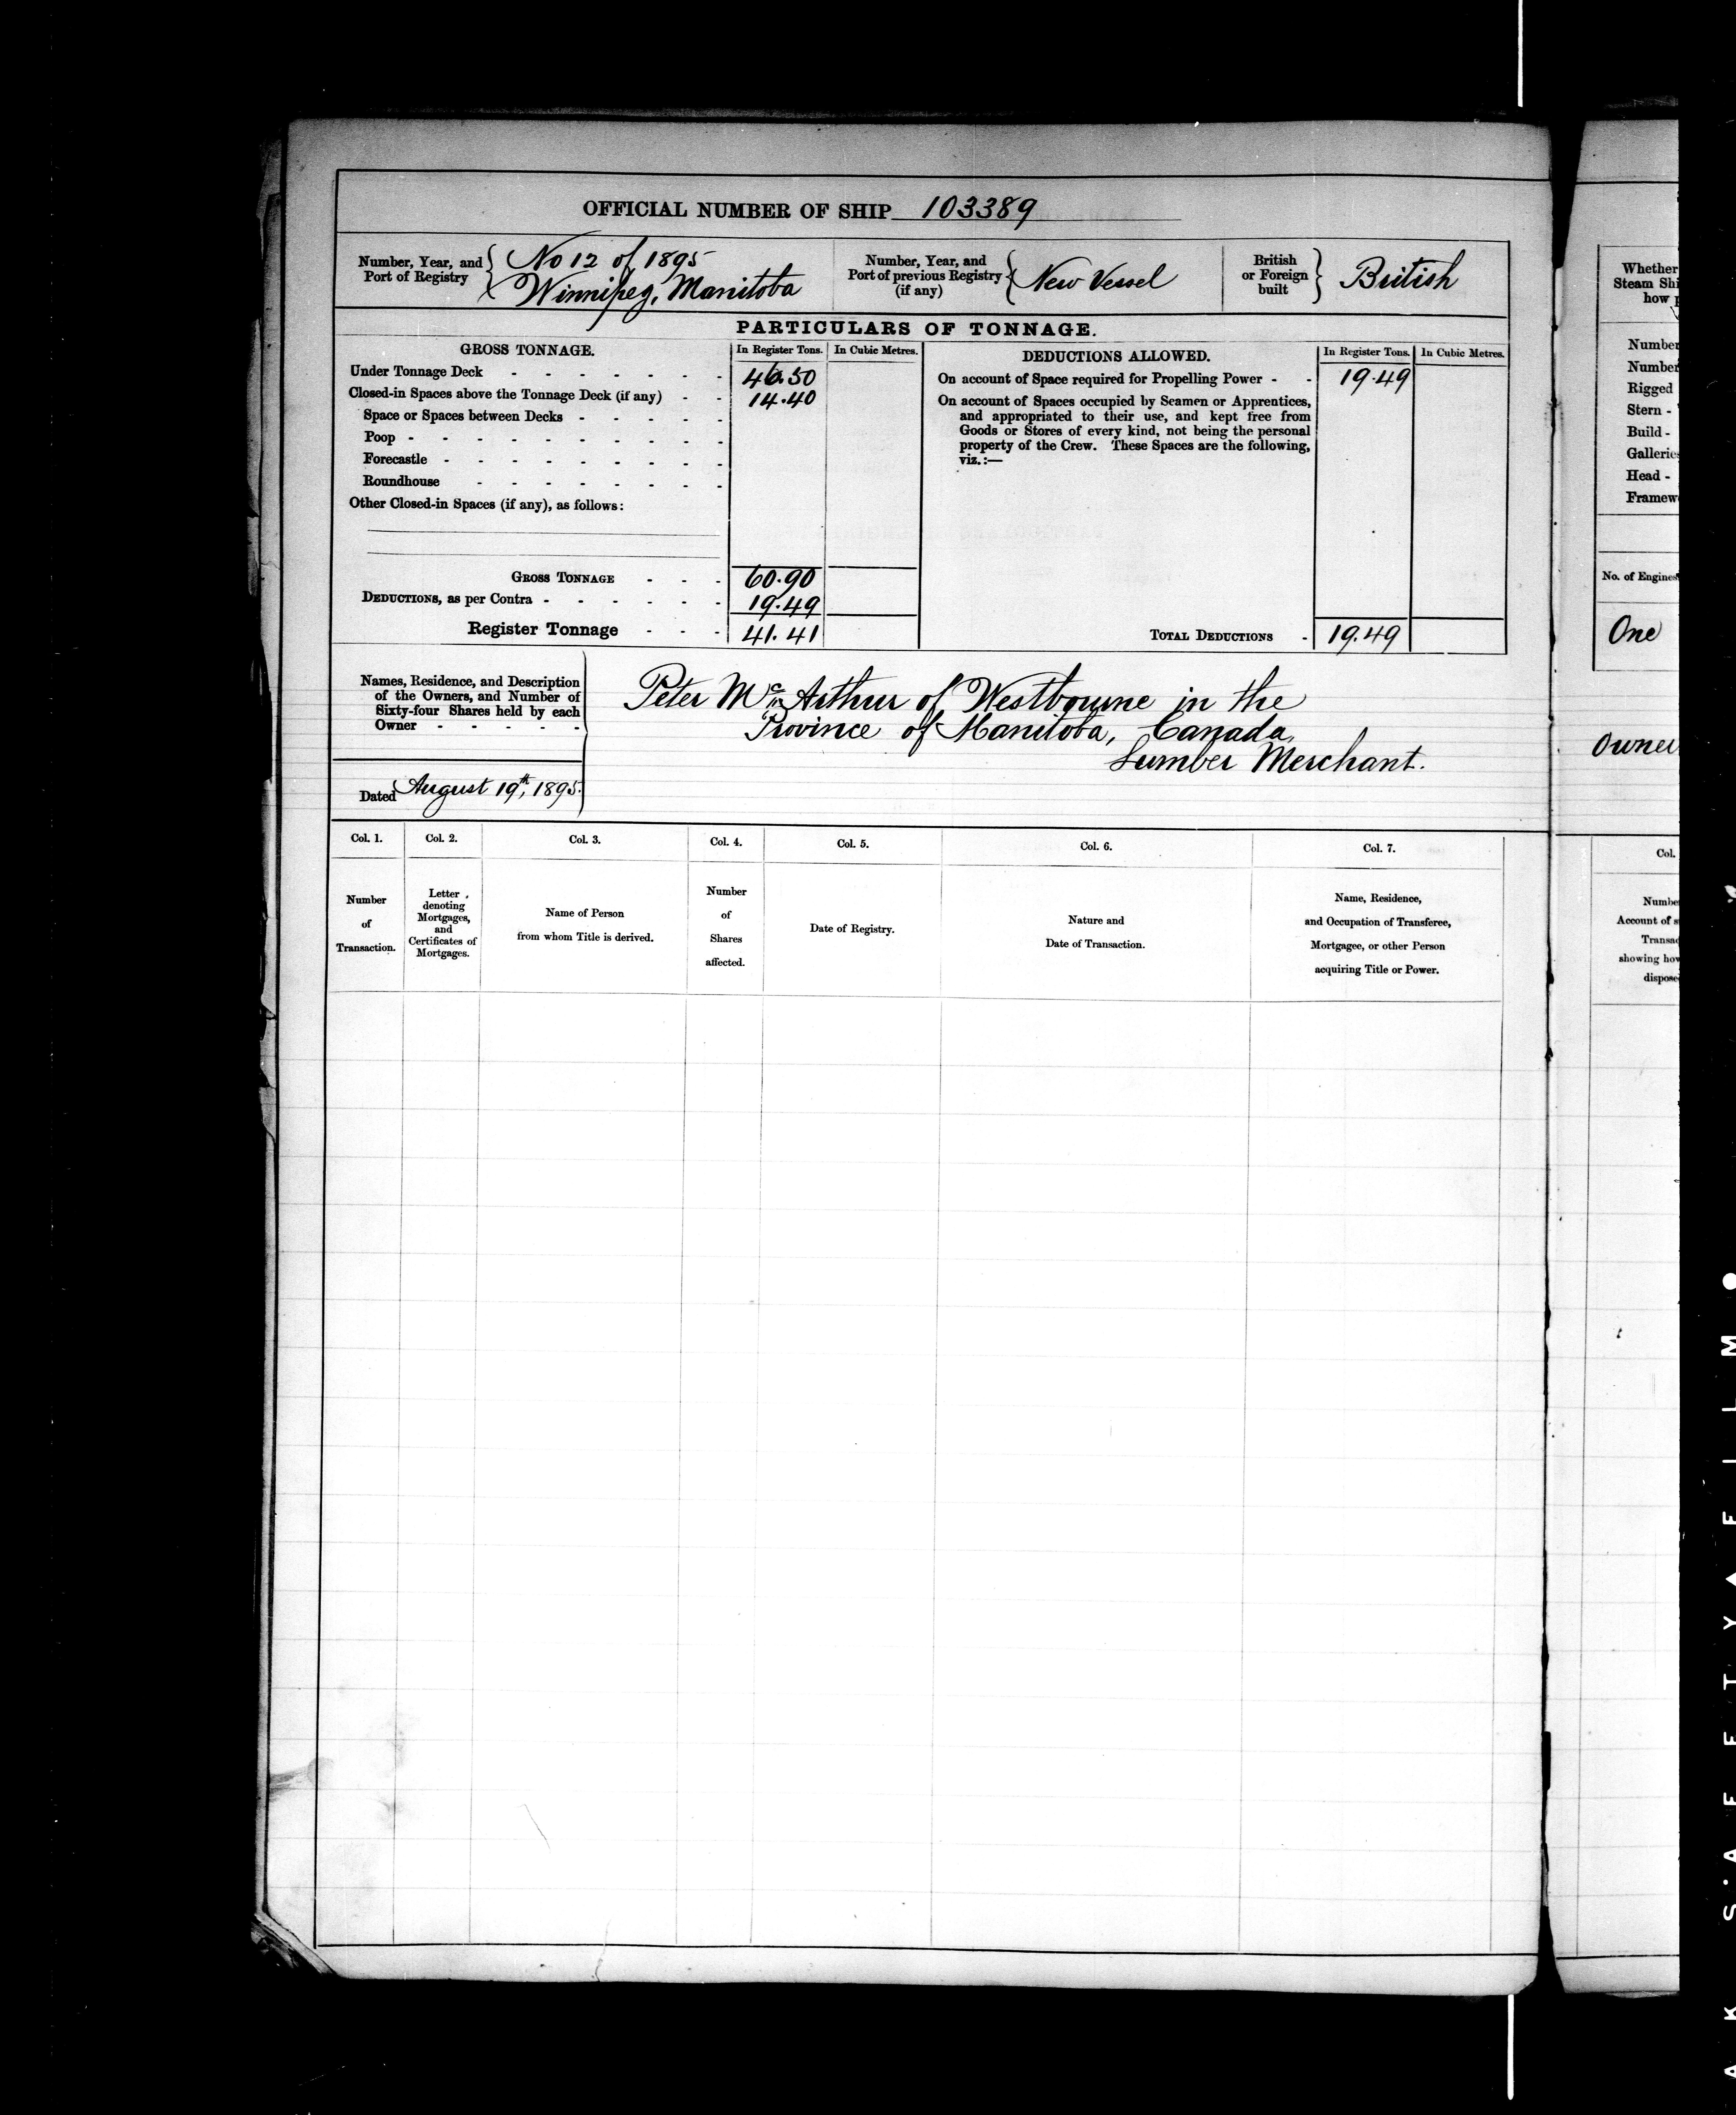 OFFICIAL NUMBER OF SHIP 103389
Number, Year, and
Port of Registry
No 12 of 1895
Winnipeg, Manitoba
Number, Year, and
Port of previous Registry
(if any)
New Vessel
British
or Foreign
built
British
PARTICULARS OF TONNAGE.
GROSS TONNAGE. In Register Tons. In Cubic Metres.
Under Tonnage Deck - - - - - - - 46.50
Closed-in Spaces above the Tonnage Deck (if any) - - 14.40
Space or Spaces between Decks - - - - -
Poop - - - - - - - - - -
Forecastle - - - - - - - - -
Roundhouse - - - - - - - -
Other Closed-in Spaces (if any), as follows:
GROSS TONNAGE - - - 60.90
DEDUCTIONS, as per Contra - - - - - - 19.49
Register Tonnage - - - 41.41
DEDUCTIONS ALLOWED. In Register Tons. In Cubic Metres.
On account of Space required for Propelling Power - - 19.49
On account of Spaces occupied by Seamen or Apprentices,
and appropriated to their use, and kept free from
Goods or Stores of every kind, not being the personal
property of the Crew. These Spaces are the following,
viz.:—
TOTAL DEDUCTIONS - 19.49
Names, Residence, and Description
of the Owners, and Number of
Sixty-four Shares held by each
Owner - - - - -
Peter McArthur of Westbourne in the
Province of Manitoba, Canada,
Lumber Merchant.
Dated August 19th, 1895.
Col. 1. Col. 2. Col. 3. Col. 4. Col. 5. Col. 6. Col. 7.
Number
of
Transaction.
Letter
denoting
Mortgages,
and
Certificates of
Mortgages.
Name of Person
from whom Title is derived.
Number
of
Shares
affected.
Date of Registry.
Nature and
Date of Transaction.
Name, Residence,
and Occupation of Transferee,
Mortgagee, or other Person
acquiring Title or Power.
Whether
Steam Shi
how p
Number
Number
Rigged
Stern -
Build -
Galleries
Head -
Framew
No. of Engines
One
Owner
Col.
Numbe
Account of s
Transac
showing how
dispose